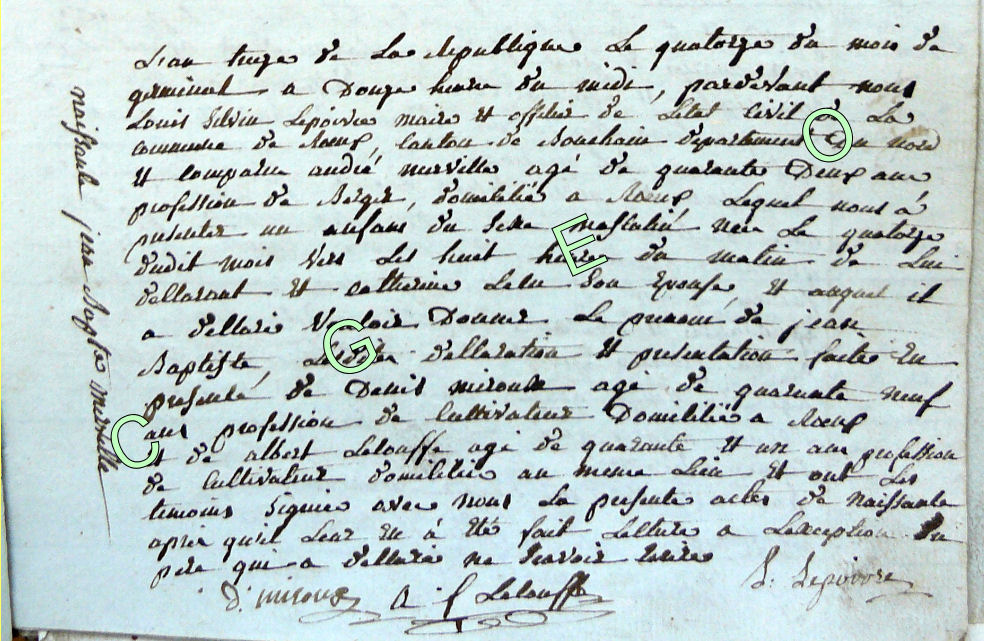 L'an treize de La republique Le quatorze du mois de
germinal a Douze heure du midi, pardevant nous
Louis Silvin Lepoivre maire et officier de Letat Civil de La
commune de Rœux, Canton de Bouchain departement Du nord
Et comparu andré merville agé de quarante Deux ans
profession de Berger, domicilié a Rœux Lequel nous á
presenter un enfans du sexe masculin née Le quatorze
dudit mois vers Les huit heures du matin de Lui
declarant Et catherine Lelu son Epouse, Et auquel il
a declaré Vouloir Donner Le prenom de jean
Baptiste, Lesdites declaration Et presentation faite En
presence de Denis miroux agé de quarante neuf
ans profession de Cultivateur Domicilié a Rœux
Et de albert Lelouffe agé de quarante Et un ans profession
de Cultivateur domicilié au meme Lieu Et ont Les
temoins Signée avec nous La presente actes de naissance
aprés qu'il Leur En á Eté fait Lecture a Lexception du
pere qui a declaré ne Savoir Ecrire
D. miroux A f Lelouffe L. Lepoivre
naissance jean Baptiste merville
O
E
G
C